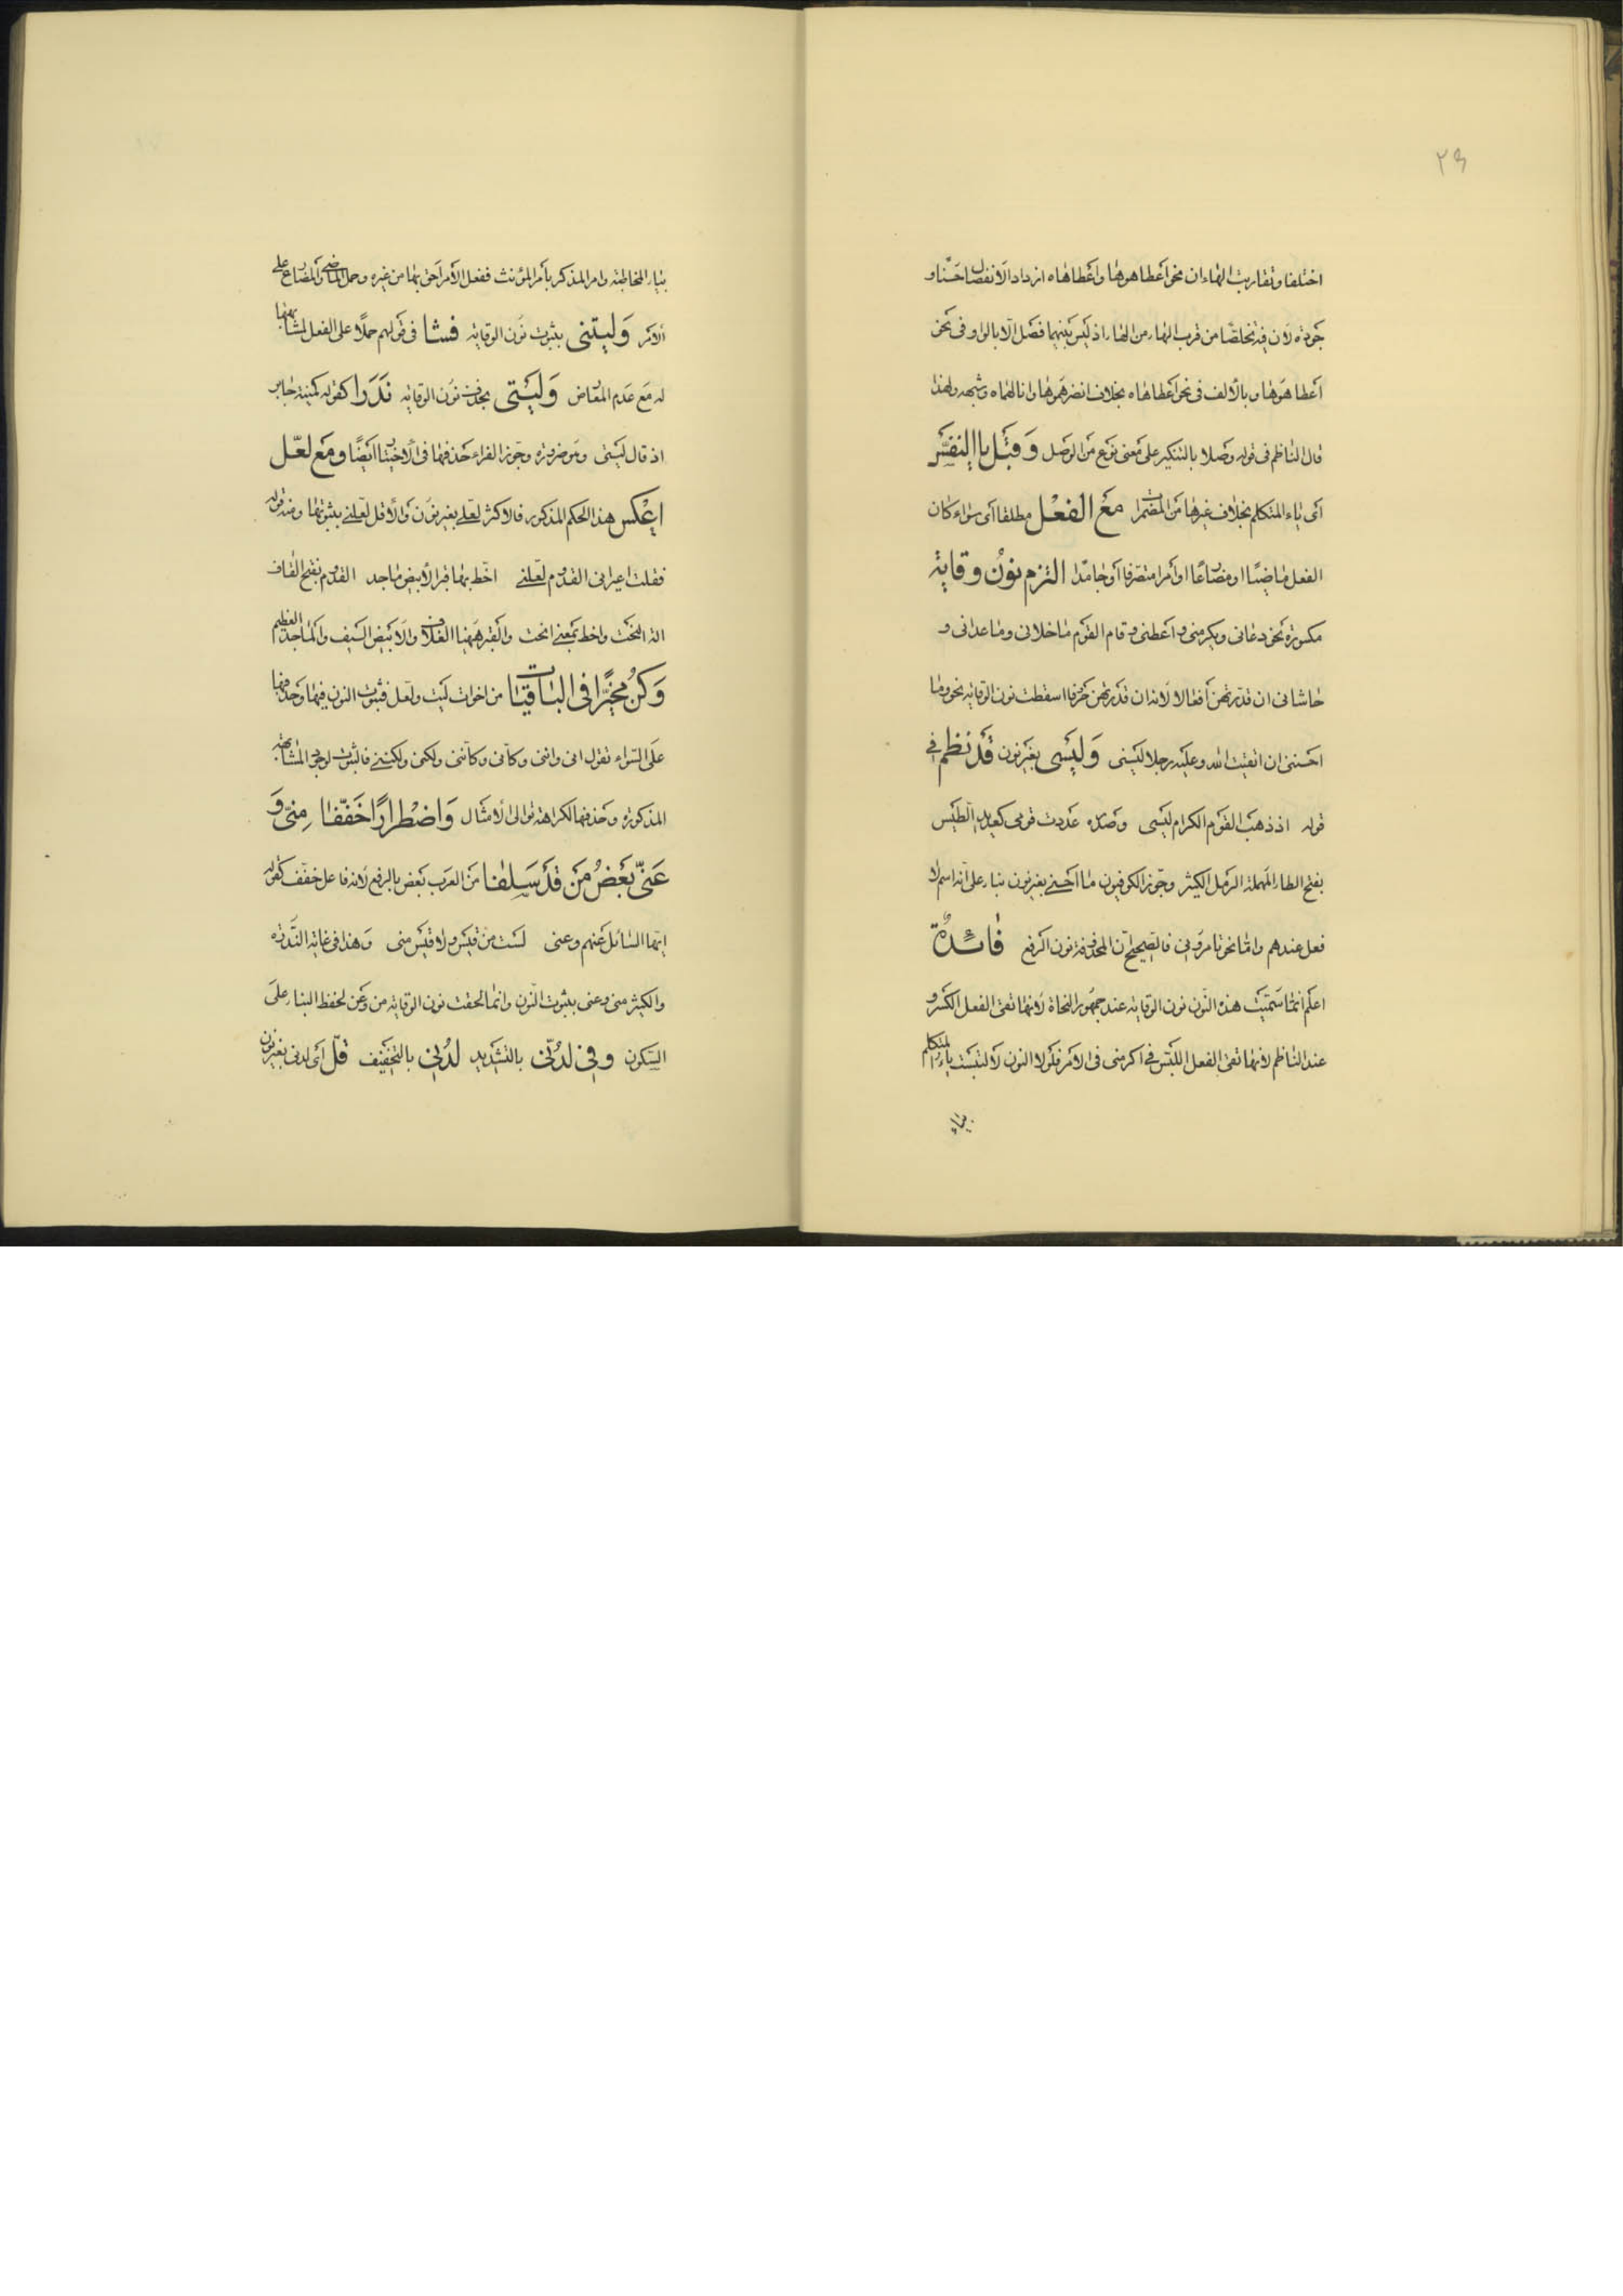 ٢٩
اختلفا وتقاربت الهاءان نحو أعطاهوها وأعطاهاه ازداد الانفصال حسنا و
جودة لأن فيه تخلصا من قرب الهاء من الهاء اذ ليس بينهما فصل الا بالواو فى نحو
أعطاهوها وبالألف فى نحو أعطاهاه بخلاف انضرهموها وانالهماه وشبهه ولهذا
قال الناظم فى قوله وصلا بالتنكير على معنى نوع من الوصل وَقَبْلَ يا النفس
أى ياء المتكلم بخلاف غيرها من المضمرات مَعَ الفعْل مطلقا أى سواء كان
الفعل ماضيًا او مضارعًا او أمرا متصرفا أو جامدًا التزم نونُ وقاية
مكسورة نحو دعانى ويكرمنى وأعطنى وقام القوم ما خلانى وما عدانى و
حاشانى ان قدرتهن أفعالا لأنه ان قدرتهن حرفا اسقطت نون الوقاية نحو وما
احسننى ان اتقيت الله وعليه رجلا ليسنى وَلَيْسى بغير نون قَدْ نظم فى
قوله اذ ذهب القوم الكرام ليسى وصدره عددت قومى كعديد الطيس
بفتح الطاء المهملة الرمل الكثير وجوز الكوفيون ما احسنى بغير نون بناء على انه اسم لا
فعل عندهم واما نحو تامرونى فالصحيح ان المحذوفة نون الرفع فائدة
اعلم انما سميت هذه النون نون الوقاية عند جمهور النحاة لانها تقى الفعل الكسر و
عند الناظم لانها تقى الفعل اللبس فى اكرمنى فى الامر فلولا النون لالتبست ياء المتكلم
بياء
بياء المخاطبة وامر المذكر بأمر المؤنث ففعل الأمر أحق بها من غيره وحمل الماضى والمضارع على
الأمر وَليتنى بثبوت نون الوقاية فشا فى قولهم حملا على الفعل لمشابهتها
له مع عدم المعارض وَلَيْتى بحذف نون الوقاية نَدَرا كقوله كمنية جابر
اذ قال ليتى وهو ضرورة وجوز الفراء حذفها فى الاختيار أيضًا ومَع لعَلّ
اعْكس هذا الحكم المذكور فالاكثر لعلى بغير نون والأقل لعلنى بثبوتها ومنه قوله
فقلت اعيرانى القدوم لعلنى اخط بها قبرا لأبيض ماجد القدوم بفتح القاف
آلة النحت واخط بمعنى انحت والقبر ههنا الغلاف والابيض السيف والماجد العظيم
وَكُنْ مُخَيَّرًا فى الباقيات من اخوات ليت ولعل فثبوت النون فيها وحذفها
على السواء تقول انى واننى وكأنى وكأننى ولكنى ولكننى فالثبوت لوجود المشابهة
المذكورة وحذفها لكراهة توالى الأمثال وَاضْطرارًا خَفّفَا مِنّى وَ
عَنّى بَعْضُ مَن قَدْ سَلفَا من العرب بعض بالرفع لانه فاعل خفف كقوله
ايها السائل عنهم وعنى لست من قيس ولا قيس منى وهذا فى غاية الندرة
والكثير منى وعنى بثبوت النون وانما لحقت نون الوقاية من وعن لحفظ البناء على
السكون وفى لدُنّى بالتشديد لدُنى بالتخفيف قلّ أى لدنى بغير نون